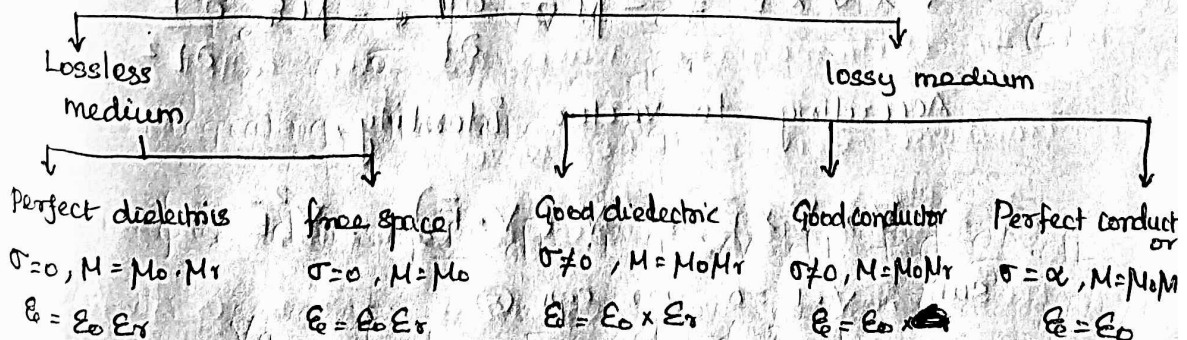 Lossless
medium
lossy medium
Perfect dielectrics
σ=0, M = M₀.Mᵣ
ε = ε₀ εᵣ
free space
σ=0, M=M₀
ε = ε₀ εᵣ
Good dielectric
σ≠0, M=M₀Mᵣ
ε = ε₀ × εᵣ
Good conductor
σ≠0, M=M₀Mᵣ
ε = ε₀ ×
Perfect conduct
or
σ = α, M=M₀M
ε = ε₀